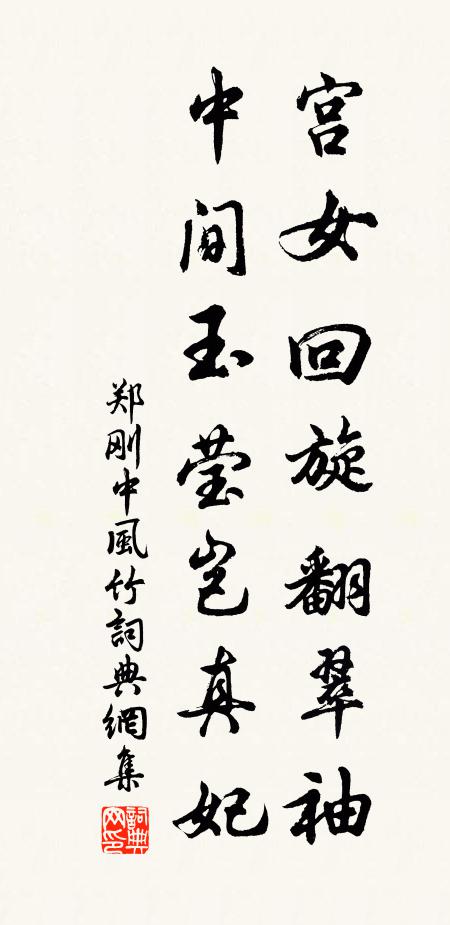 宫女回旋翻翠袖
中间玉莹岂真妃
郑刚中风竹詞典網集
詞典网印